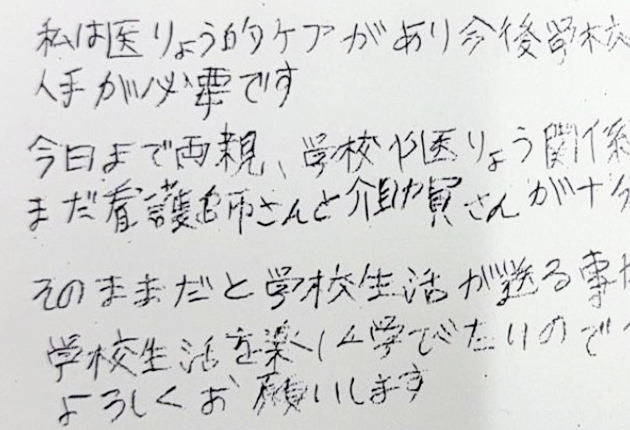 私は医りょう的ケアがあり今後学校
人手が必要です
今日まで両親、学校や医りょう関係
まだ看護師さんと介助員さんが十分
そのままだと学校生活が送る事が
学校生活を楽しく学びたいので
よろしくお願いします